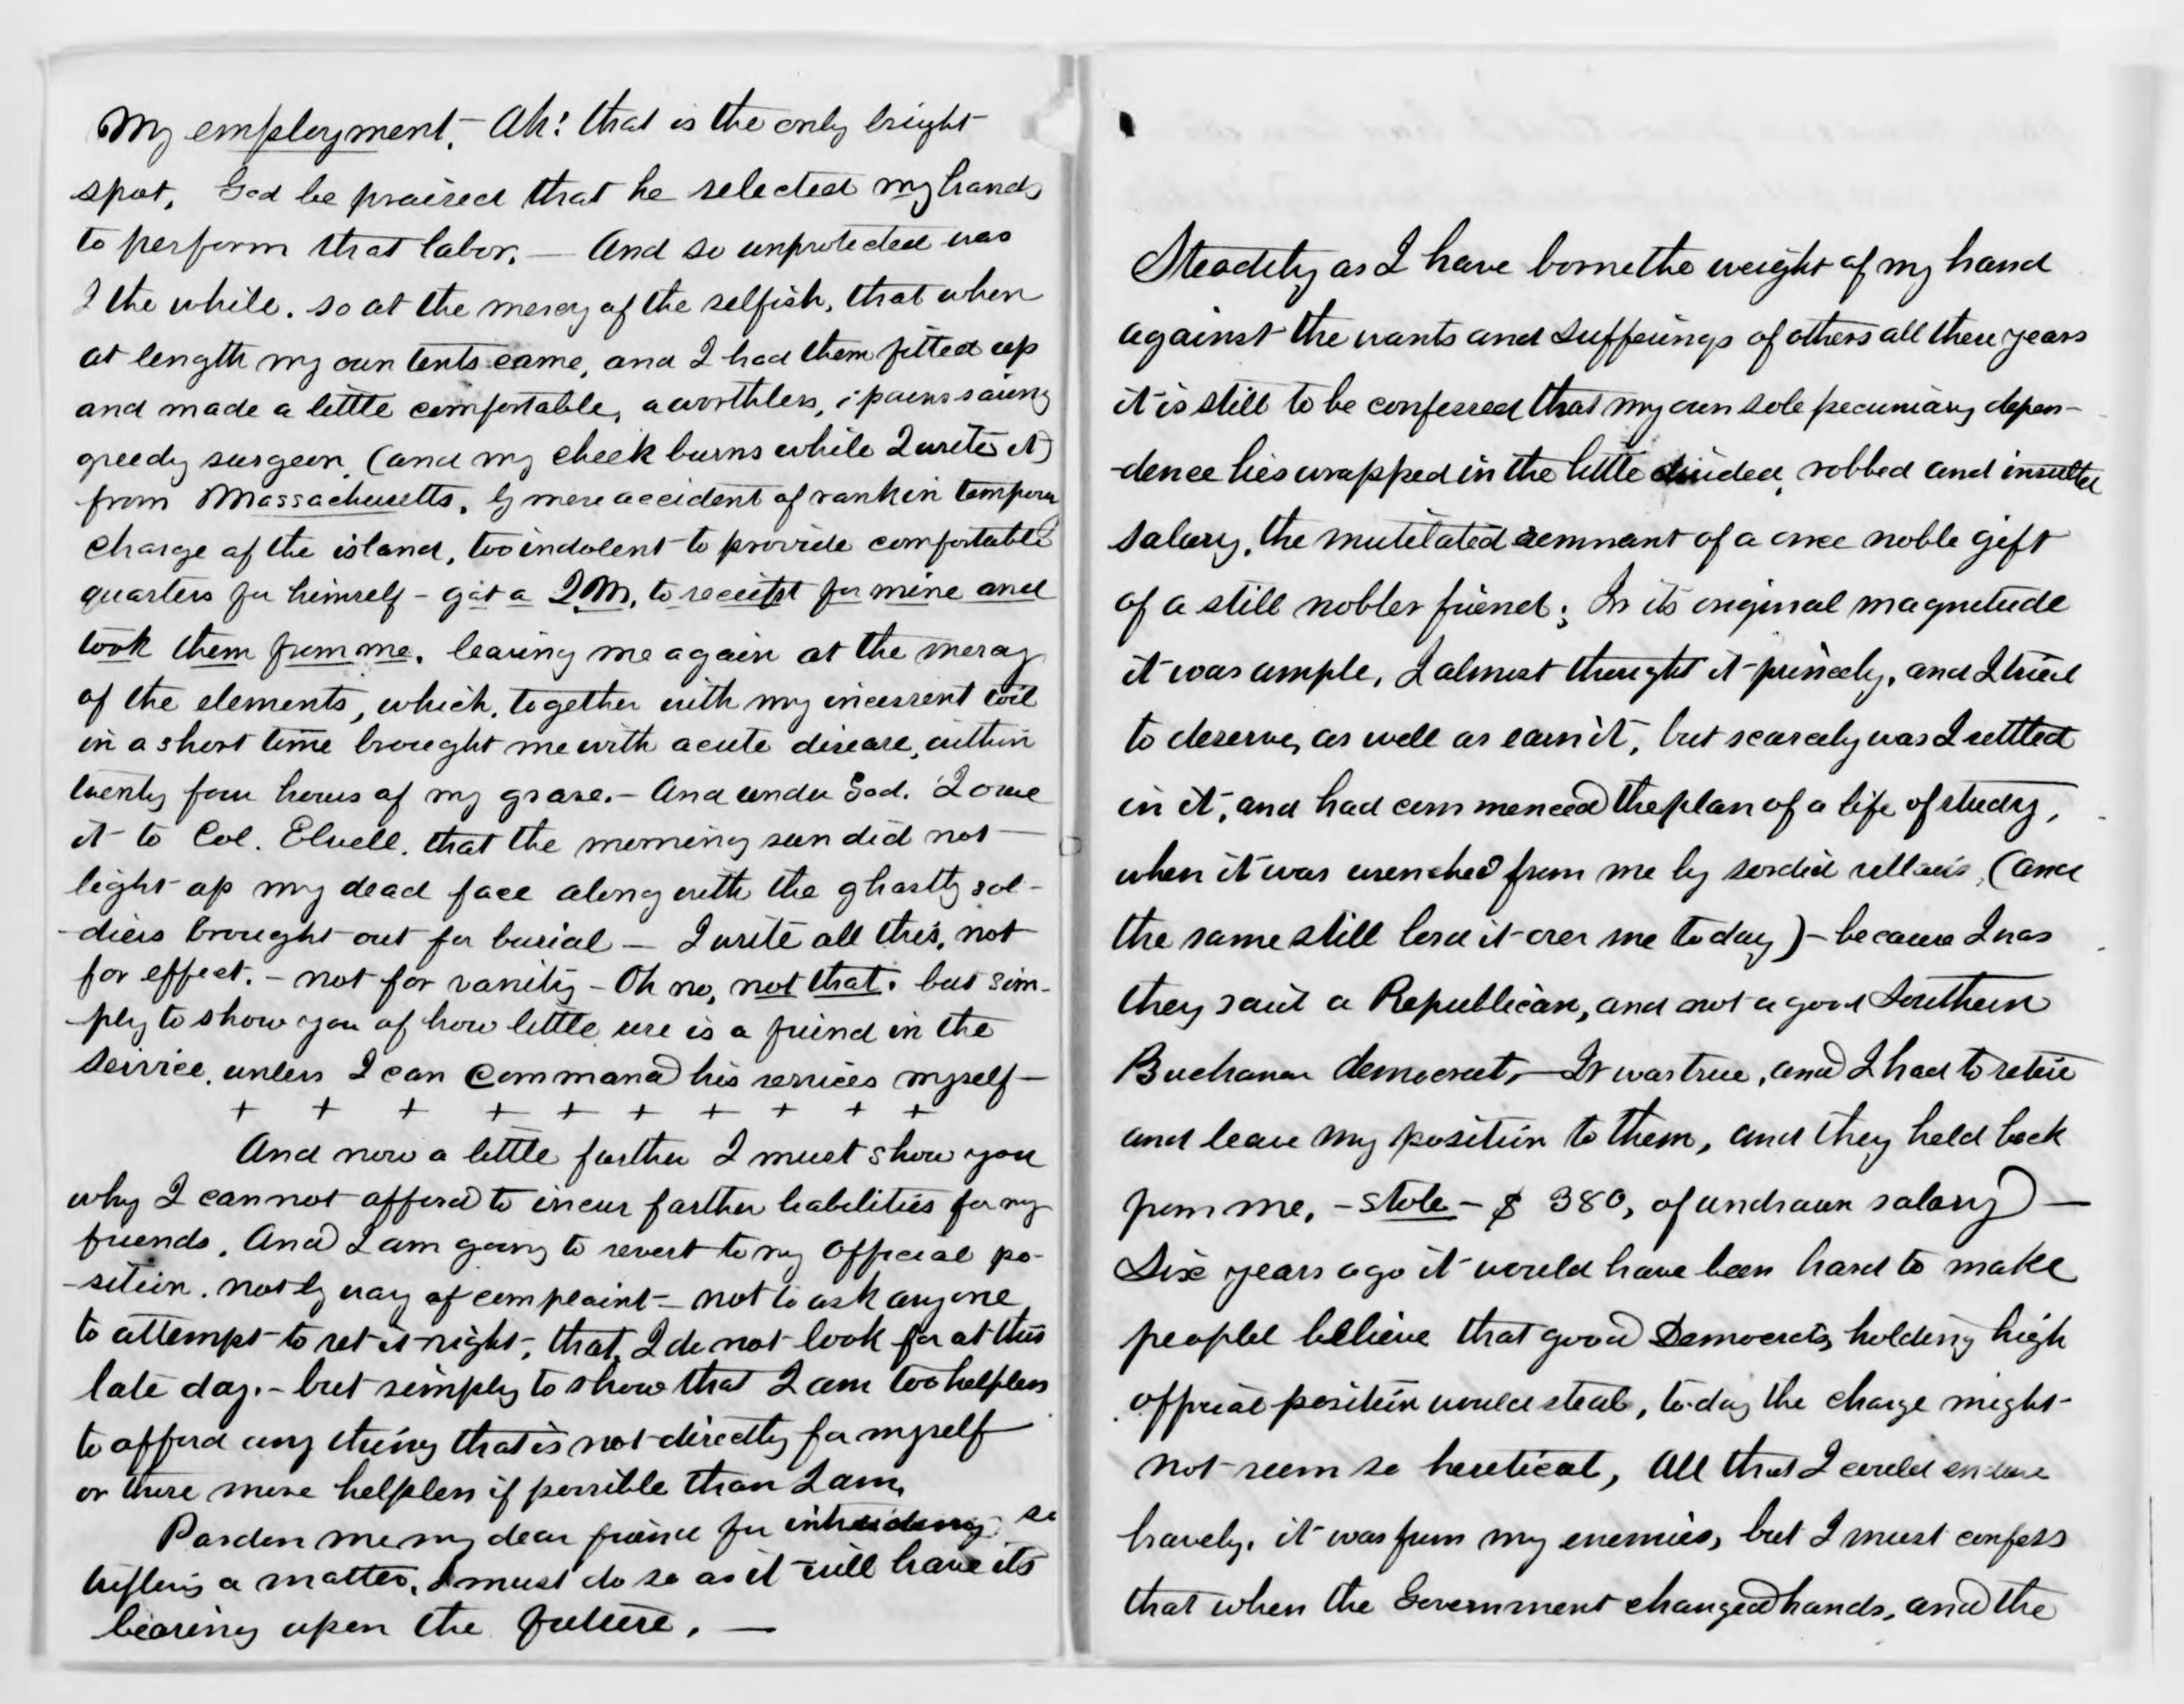 My employment. - Ah! that is the only bright
spot, God be praised that he selected my hands
to perform that labor. — And so unprotected was
I the while. so at the mercy of the selfish, that when
at length my own tents came, and I had them fitted up
and made a little comfortable, a worthless,
greedy surgeon, (and my cheek burns while I write it)
from Massachusetts, by mere accident of rank in tempory
charge of the island, too indolent to provide comfortable
quarters for himself - got a 2.M. to receipt for mine and
took them from me. leaving me again at the mercy
of the elements, which, together with my incessent toil
in a short time brought me with acute disease, within
twenty four hours of my grave. - And under God. I owe
it to Col. Elwell, that the morning sun did not
light up my dead face along with the ghastly sol-
-diers brought out for burial — I write all this, not
for effect. - not for vanity - Oh no, not that. but sim-
-ply to show you of how little use is a friend in the
service, unless I can command his services myself —
+ + + + + + + + + +
And now a little farther I must show you
why I cannot afford to incur farther liabilities for my
friends. And I am going to revert to my official po-
-sition. not by way of complaint - not to ask any one
to attempt to set it right, that, I do not look for at this
late day. - but simply to show that I am too helpless
to afford any thing that is not directly for myself
or those more helpless if possible than I am,
Pardon me my dear friend for so
trifling a matter, I must do so as it will have its
bearing upon the future. —
Steadily as I have borne the weight of my hand
against the wants and sufferings of others all these years
it is still to be confessed that my own sole pecuniary depen-
-dence lies wrapped in the little divided, robbed and insulted
salary, the mutilated remnant of a once noble gift
of a still nobler friend; In its original magnitude
it was ample, I almost thought it princely, and I tried
to deserve, as well as earn it, but scarcely was I settled
in it, and had commenced the plan of a life of study,
when it was wrenched from me by sordid villains, (and
the same still lord it over me today) - because I was
they said a Republican, and not a good Southern
Buchanan democrat, — It was true, and I had to retire
and leave my position to them, and they held back
from me, - stole - $ 380, of undrawn salary —
Six years ago it would have been hard to make
people believe that good Democrats, holding high
official position would steal, to-day the charge might
not seem so heretical, All that I could endure
bravely, it was from my enemies, but I must confess
that when the Government changed hands, and the